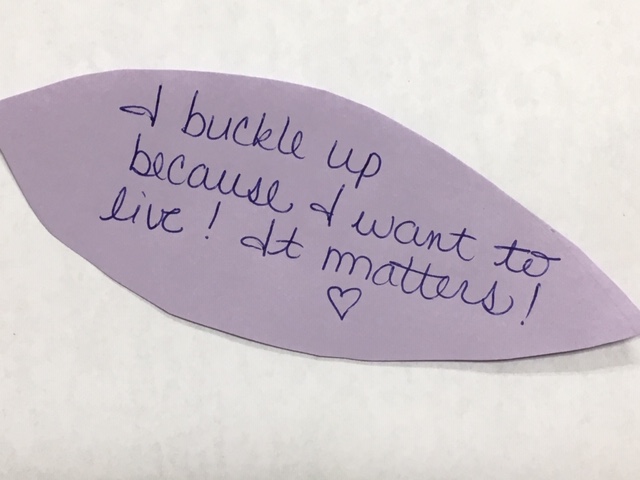 I buckle up
because I want to
live! It matters!
♡